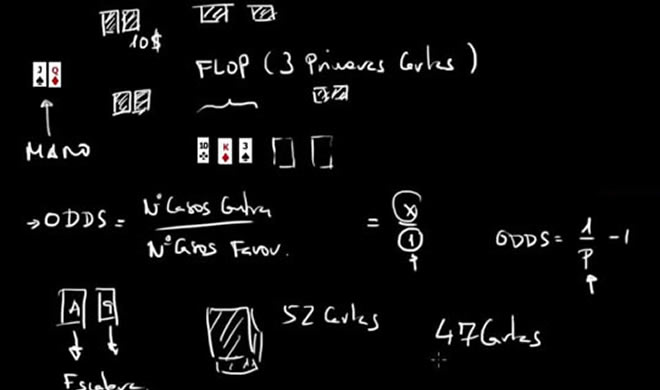 10$
J Q
FLOP (3 Primeras Cartas)
MANO
10 K 3
→ODDS = Nº Casos Contra / Nº Casos Favor. = x / 1
ODDS = 1 / P - 1
A 9
52 Cartas
47 Cartas
Escalera